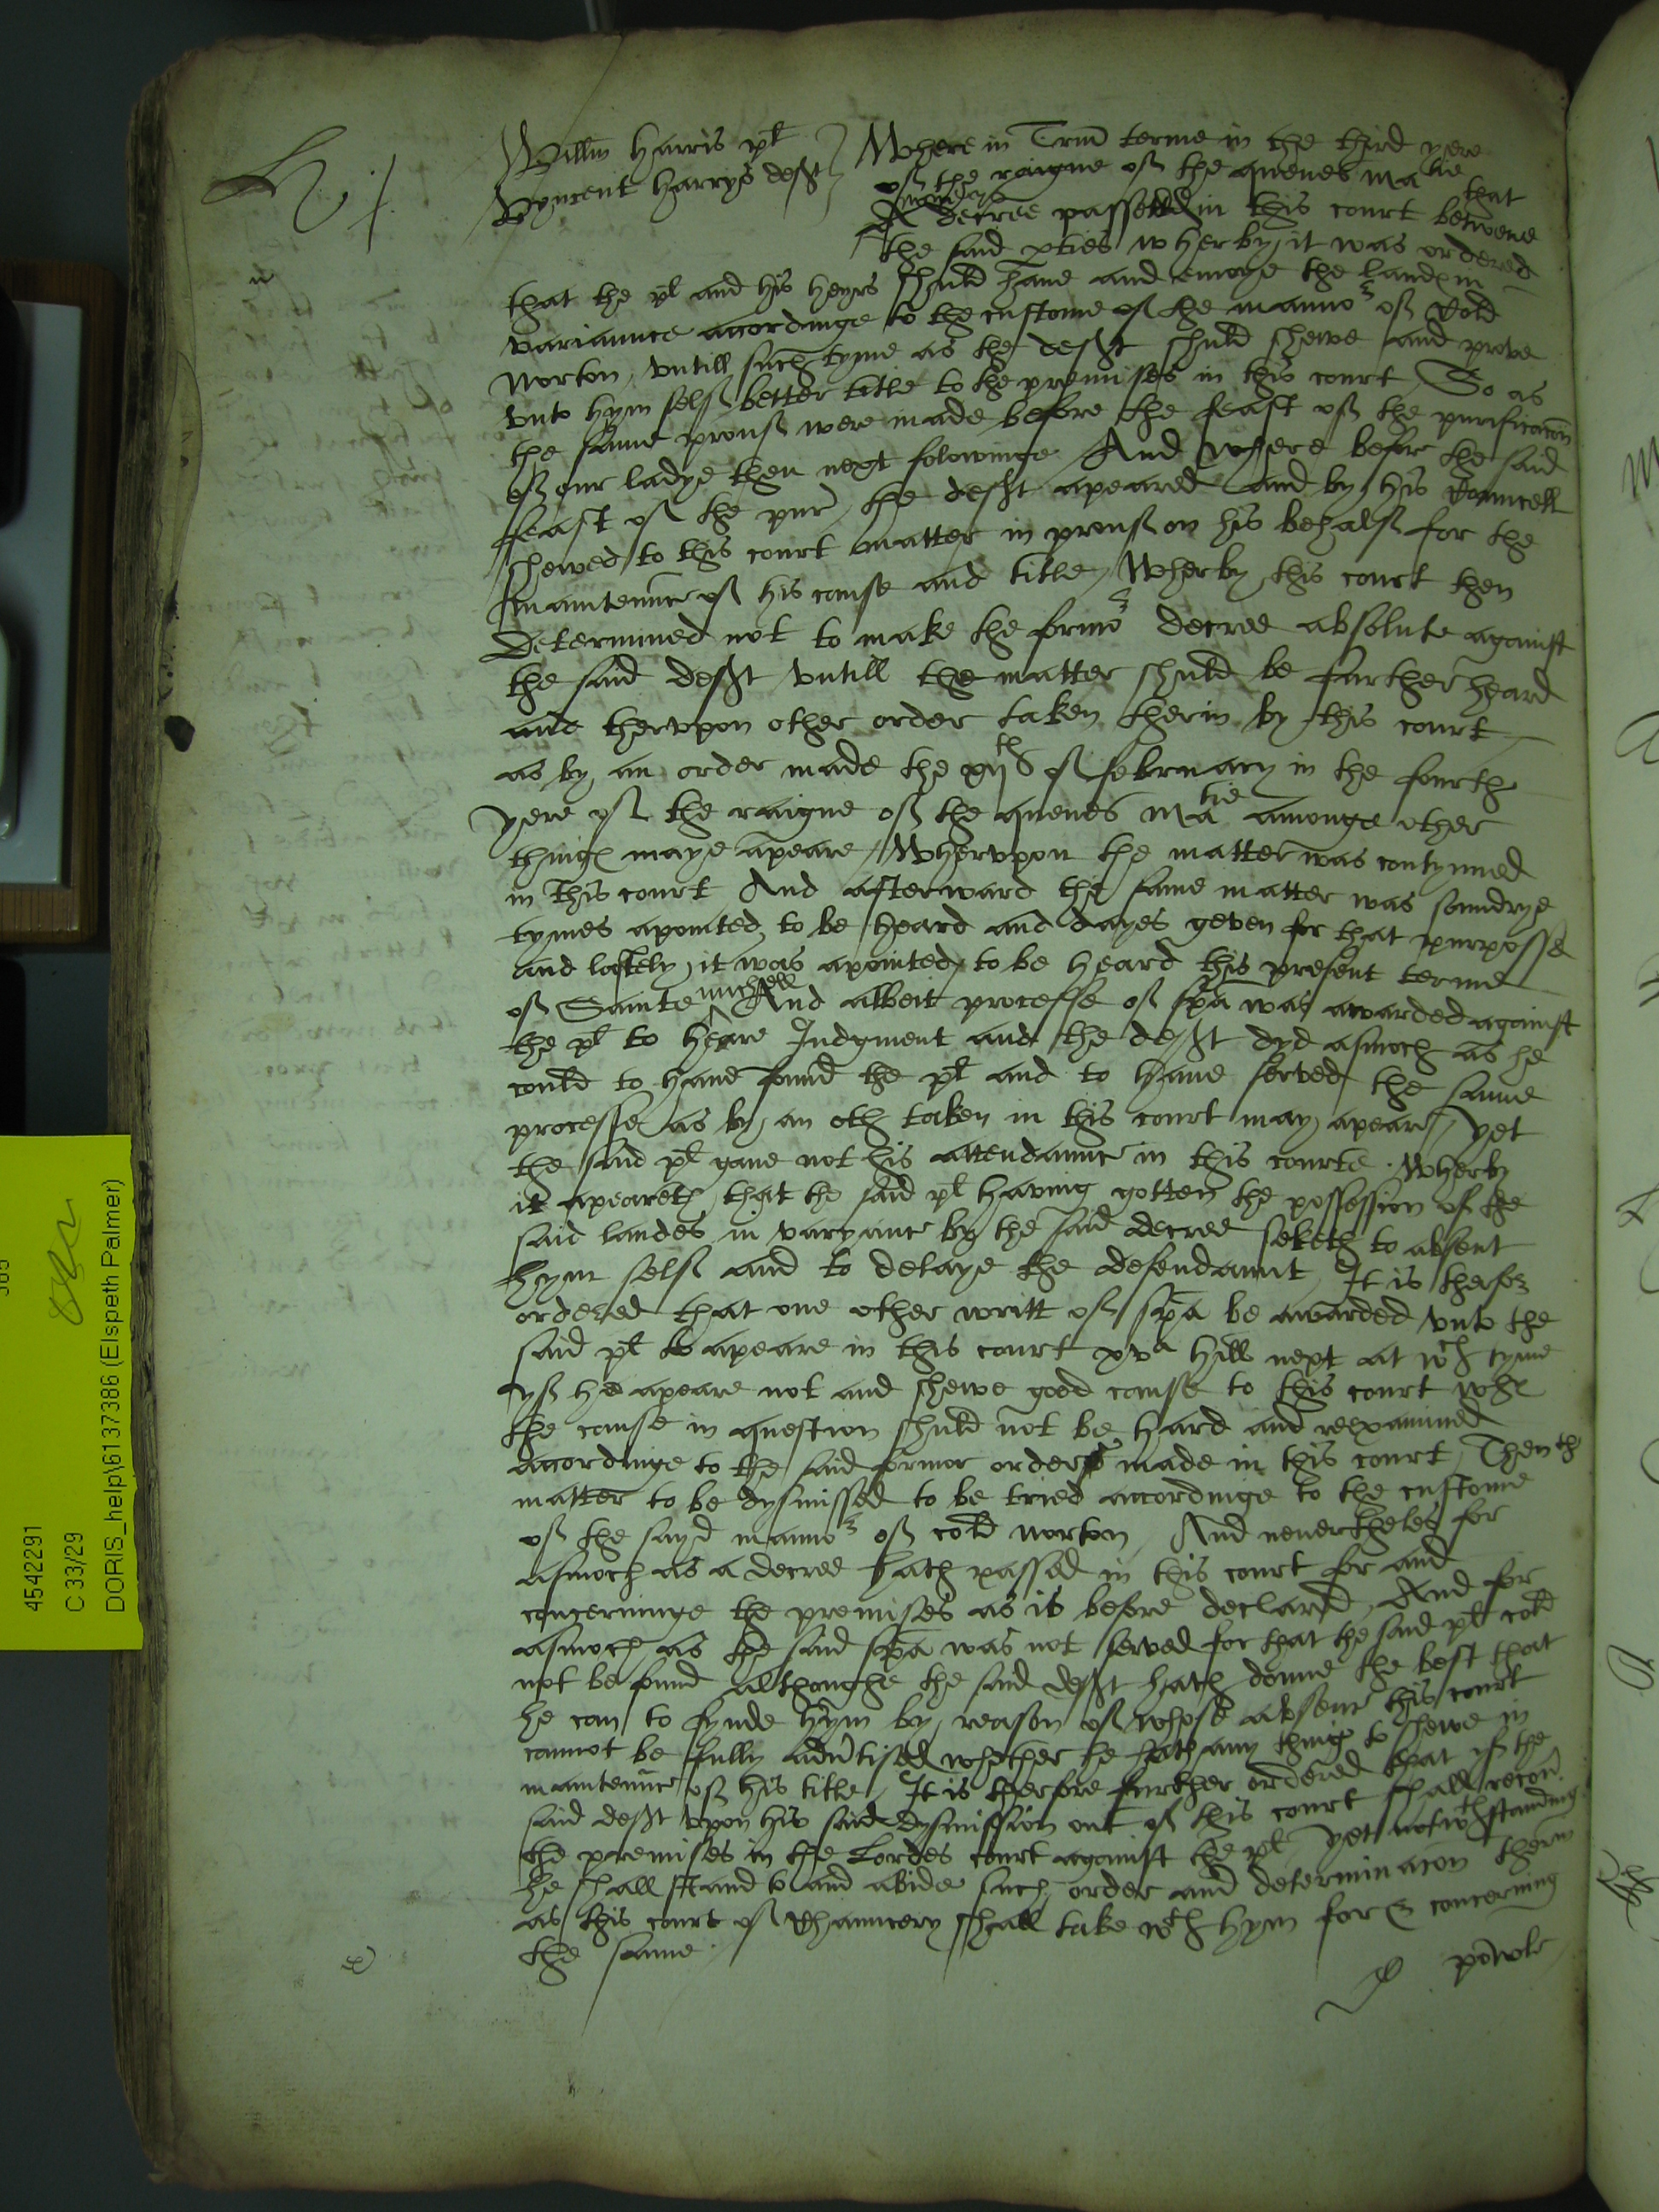 Willm Harris pl
Vyncent Harrys deft
Where in Trin terme in the third yere
of the raigne of the quenes Matie that
A decree passed in this court betwene
the said pties wherby it was ordered
that the pl and his heyrs shuld haue and enioye the landes in
variaunce accordinge to the custome of the mannor of Cold
Norton, vntill such tyme as the deft shuld shewe and prove
vnto hym self better title to the premises in this court So as
the same prouf were made before the feast of the purificacon
of our ladye then next folowinge And where befor the said
feast of the pur, the deft apeared and by his Councell
shewed to this court matter in prouf on his behalf for the
mainten̄nce of his cause and title, Wherby this court then
determined not to make the former decree absolute against
the said deft vntill the matter shuld be further heard
and thervpon other order taken therin by this court
as by an order made the xijth of february in the fourth
yere of the raigne of the quenes Matie amonge other
thinges maye apeare, Whervpon the matter was contynued
in this court And afterward the same matter was soundrye
tymes apointed to be heard and dayes geven for that purposse
and lastely it was apointed to be heard this present terme
of Sainte michell And albeit processe of spa was awarded against
the pl to heare Iudgment and the deft dyd asmoch as he
could to haue found the pl and to haue served the same
processe as by an oth taken in this court may apeare, yet
the said pl gaue not his attendaunce in this courte. Wherby
it apeareth that the said pl having gotten the possession of the
said landes in varyance by the said decree seketh to absent
hym self and to delaye the defendaunt, It is therfor
ordered that one other writt of spa be awarded vnto the
said pl to apeare in this court xva Hill next at wch tyme
yf he apeare not and shewe good cause to this court why
the cause in question shuld not be hard and reexamined
accordinge to the said former orders made in this court, Then the
matter to be dysmissed to be tried accordinge to the custome
of the sayd mannor of cold norton And neuertheles for
asmoch as a decree hath passed in this court for and
concerninge the premises as is before declared, And for
asmoch as the said spa was not served for that the said pl cold
not be found althoughe the said deft hath donne the best that
he can to fynde hym by reason of whose absence this court
cannot be fully aduertised whether he hath any thinge to shewe in
maintenunce of his title, It is therfore further ordered that yf the
said deft vpon his said dysmission out of this court shall recoū
the premises in the Lordes court against the pl, yet notwthstanding
he shall stand to and abide such order and determinacon therin
as this court of Chauncery shall take wth hym for & concerning
the same.
powle
4542291
C 33/29
DORIS_help\6137386 (Elspeth Palmer)